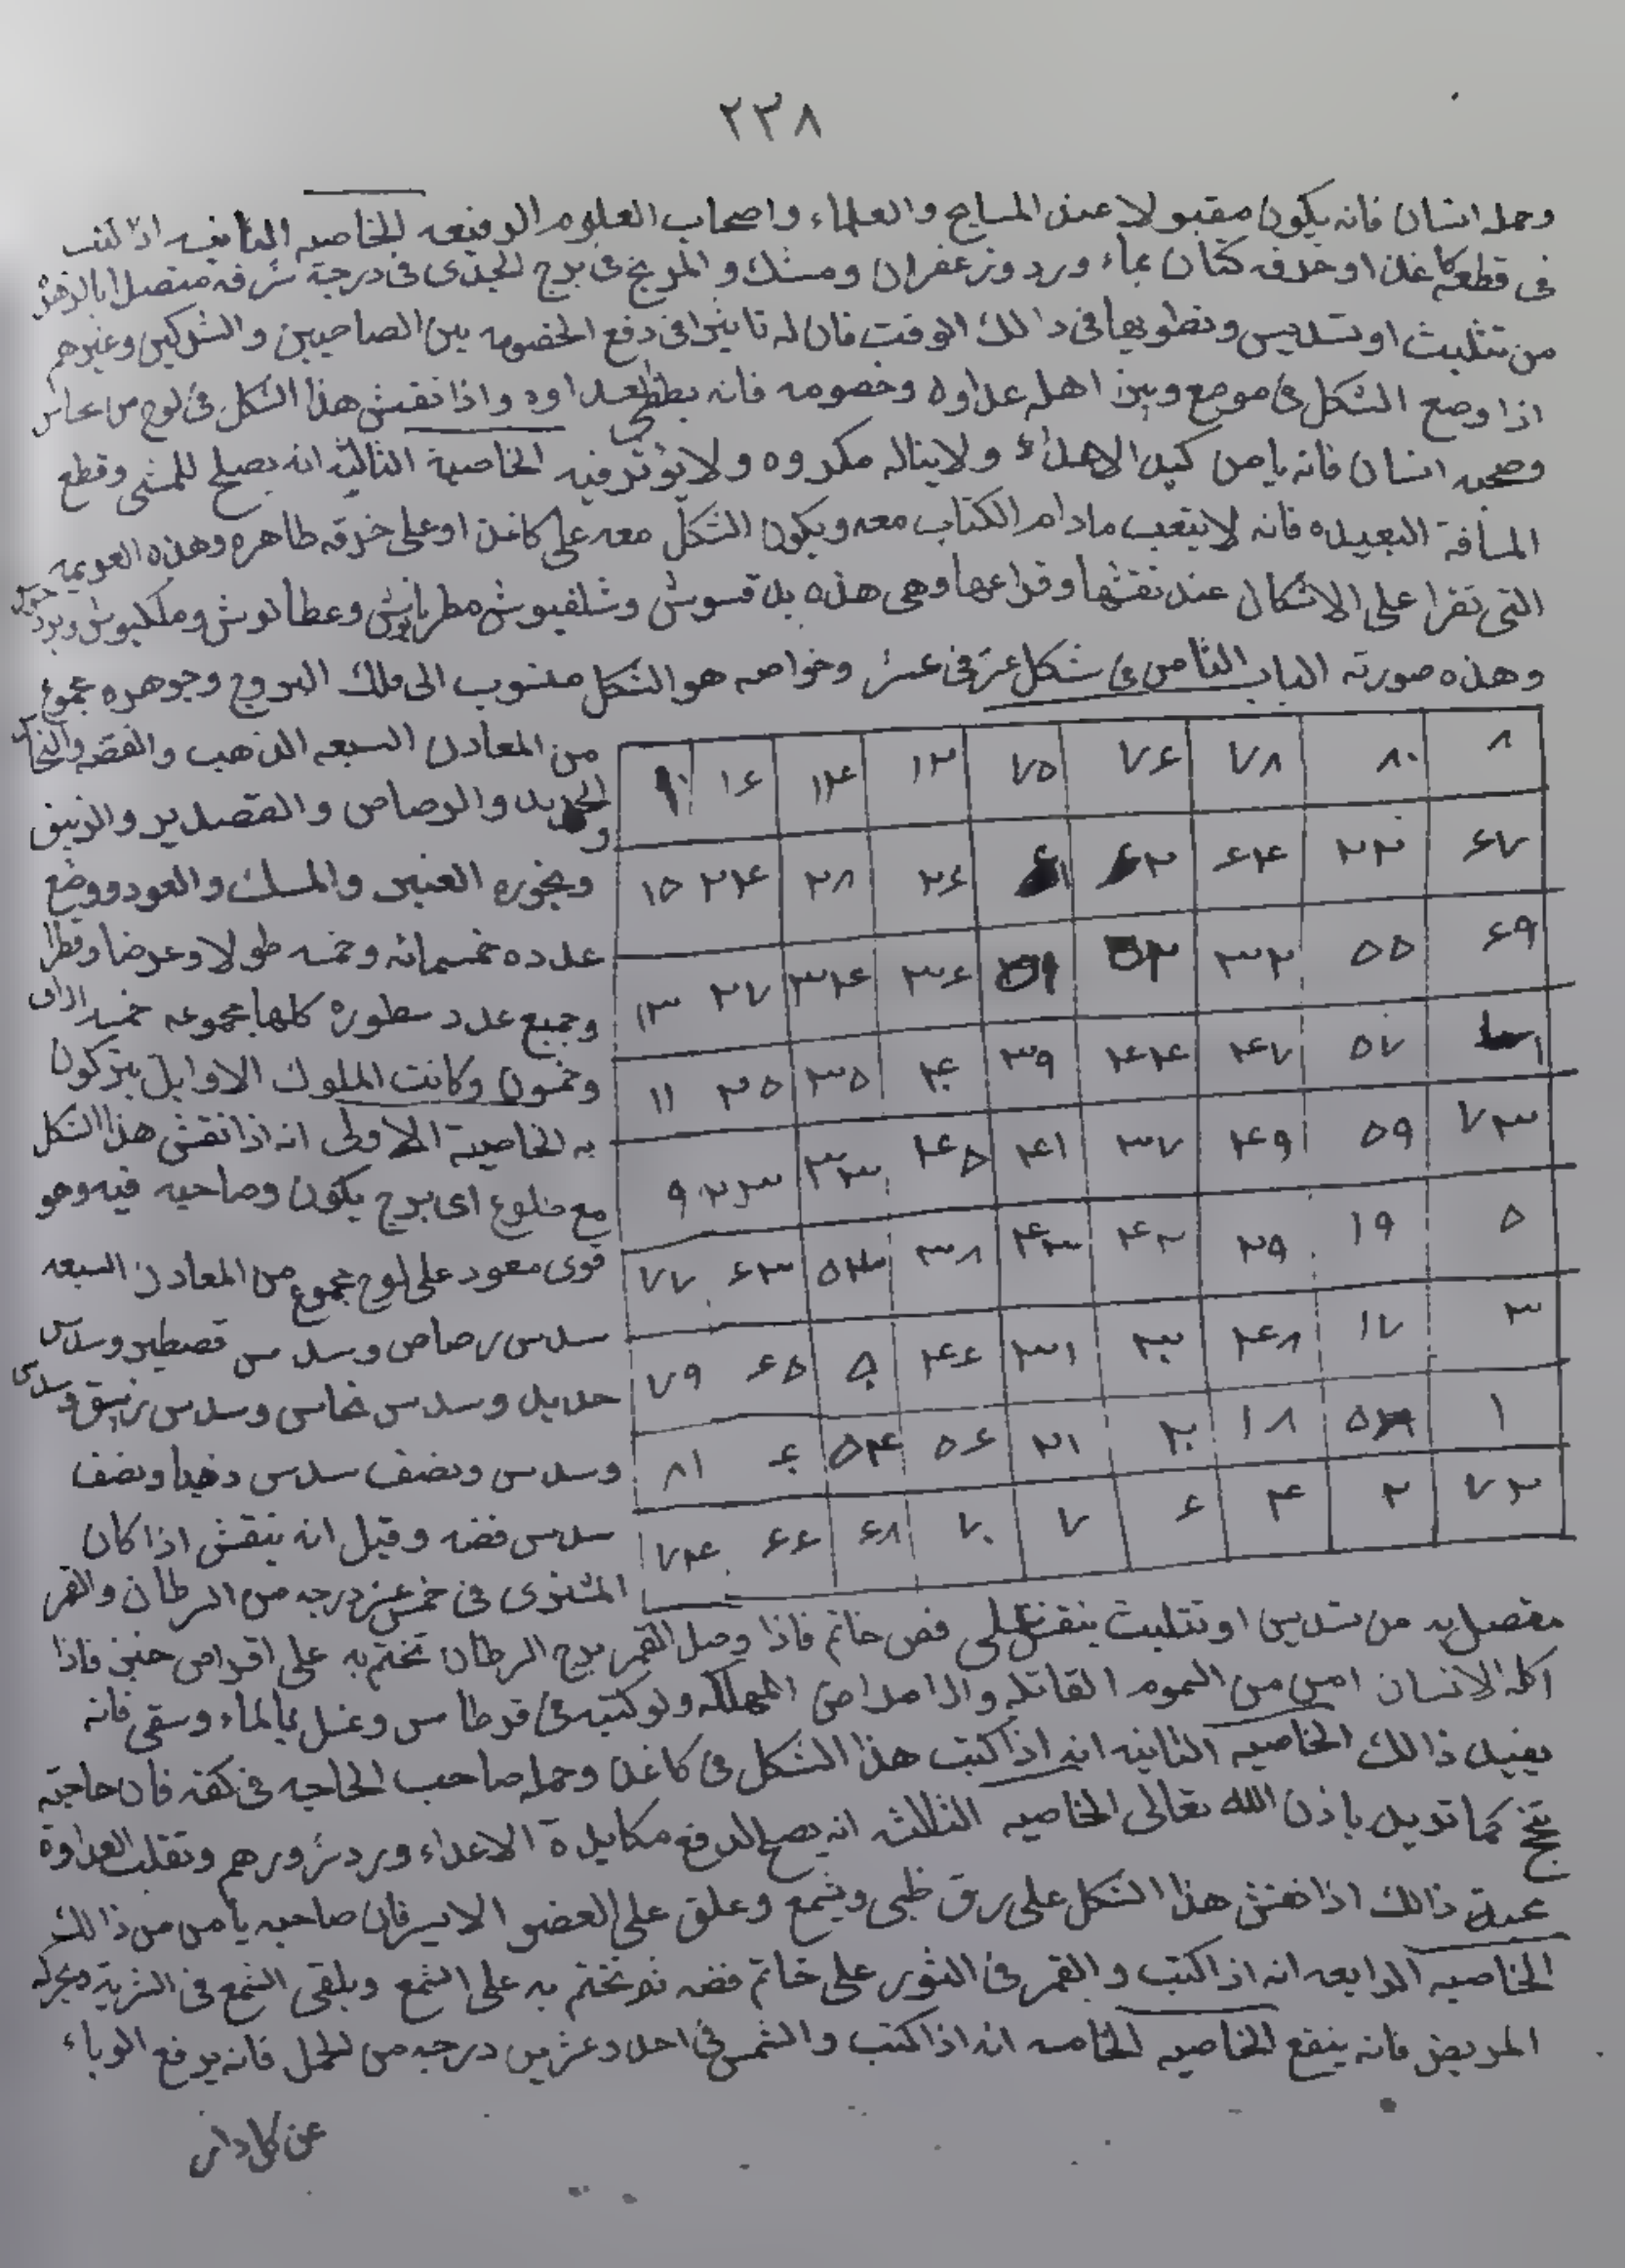 ٢٣٨
وحمله انسان فانه يكون مقبولا عند المسايح والعلماء واصحاب العلوم الرفيعه الخاصيه الثانيه اذا كتب
فى قطعة كاغذ او خرقه كتان بماء ورد وزعفران ومسك و المريخ فى برج الجدى فى درجة شرفه متصلا بالزهره
من تثليث او تسديس وتطويها فى ذالك الوقت فان له تاثيرا فى دفع الخصومه بين الصاحبين والشركين وغيرهم
اذا وضع الشكل فى موضع وبين اهله عداوه وخصومه فانه يبطل العداوه واذا نقش هذا الشكل فى لوح من نحاس
وصحبه انسان فانه يامن كيد الاعداء ولا يناله مكروه ولا يؤثر فيه الخاصية الثالثه انه يصلح للمشى وقطع
المسافة البعيده فانه لا يتعب مادام الكتاب معه ويكون الشكل معه على كاغذ او على خرقه طاهره وهذه العزيمه
التى تقرا على الاشكال عند نقشها وقراعها وهى هذه بد قسوش وشلفيوش مطربانوش وعطانوش وملكيوش
وهذه صورته الباب الثامن فى شكل عز فى عشر وخواصه هو الشكل منسوب الى فلك البروج وجوهره مجموع
من المعادن السبعه الذهب والفضه والنحاس
والحديد والرصاص والقصدير والزيبق
وبخوره العنبر والمسك والعود ووضع
عدده خمسمائه وخمسه طولا وعرضا وقطرا
وجميع عدد سطوره كلها مجموعه خمسه الاف
وخمسون وكانت الملوك الاوايل يتبركون
به الخاصية الاولى انه اذا نقش هذا الشكل
مع طلوع اى برج يكون وصاحبه فيه وهو
قوى مسعود على لوح مجموع من المعادن السبعه
سدس رصاص وسدس قصطير وسدس
حديد وسدس نحاس وسدس زيبق وسدس
وسدس ونصف سدس ذهبا ونصف
سدس فضه وقيل انه ينقش اذا كان
المشترى فى خمس عشر درجه من السرطان والقمر
٨ ٨٠ ٧٨ ٧٦ ٧٥ ١٢ ١٤ ١٦ ١٠
٦٧ ٢٢ ٦٤ ٦٢ ٦١ ٢٦ ٢٨ ٢٤ ١٥
٦٩ ٥٥ ٣٢ ٥٢ ٥١ ٣٦ ٣٤ ٢٧ ١٣
٥٧ ٤٧ ٤٤ ٣٩ ٤٠ ٣٥ ٢٥ ١١
٧٣ ٥٩ ٤٩ ٣٧ ٤١ ٤٥ ٣٣ ٢٣ ٩
٥ ١٩ ٢٩ ٤٢ ٤٣ ٣٨ ٥٣ ٦٣ ٧٧
٣ ١٧ ٤٨ ٣٠ ٣١ ٤٦ ٥٠ ٦٥ ٧٩
١ ٥٨ ١٨ ٢٠ ٢١ ٥٦ ٥٤ ٦٠ ٨١
٧٢ ٢ ٤ ٦ ٧ ٧٠ ٦٨ ٦٦ ٧٤
متصل به من تسديس او تثليث ينقش على فص خاتم فاذا وصل القمر برج السرطان تختم به على اقراص خبز فاذا
اكله الانسان امن من السموم القاتله والامراض المهلكه ولو كتبه فى قرطاس وغسل بالماء وسقى فانه
يفيد ذالك الخاصيه الثانيه انه اذا كتب هذا الشكل فى كاغذ وحمله صاحب الحاجه فى كفه فان حاجته
تنجح كما تريد باذن الله تعالى الخاصيه الثالثه انه يصح لدفع مكايدة الاعداء ورد شرورهم وتقلب العداوة
محبة ذالك اذا نقش هذا الشكل على رق ظبى ويشمع وعلق على العضو الايسر فان صاحبه يامن من ذالك
الخاصيه الرابعه انه اذا كتب والقمر فى الثور على خاتم فضه ثم تختم به على الشمع ويلقى الشمع فى الشربة
المريض فانه ينفع الخاصيه الخامسه انه اذا كتب والشمس فى احد وعشرين درجه من الحمل فانه يرفع الوباء
عن كل دار